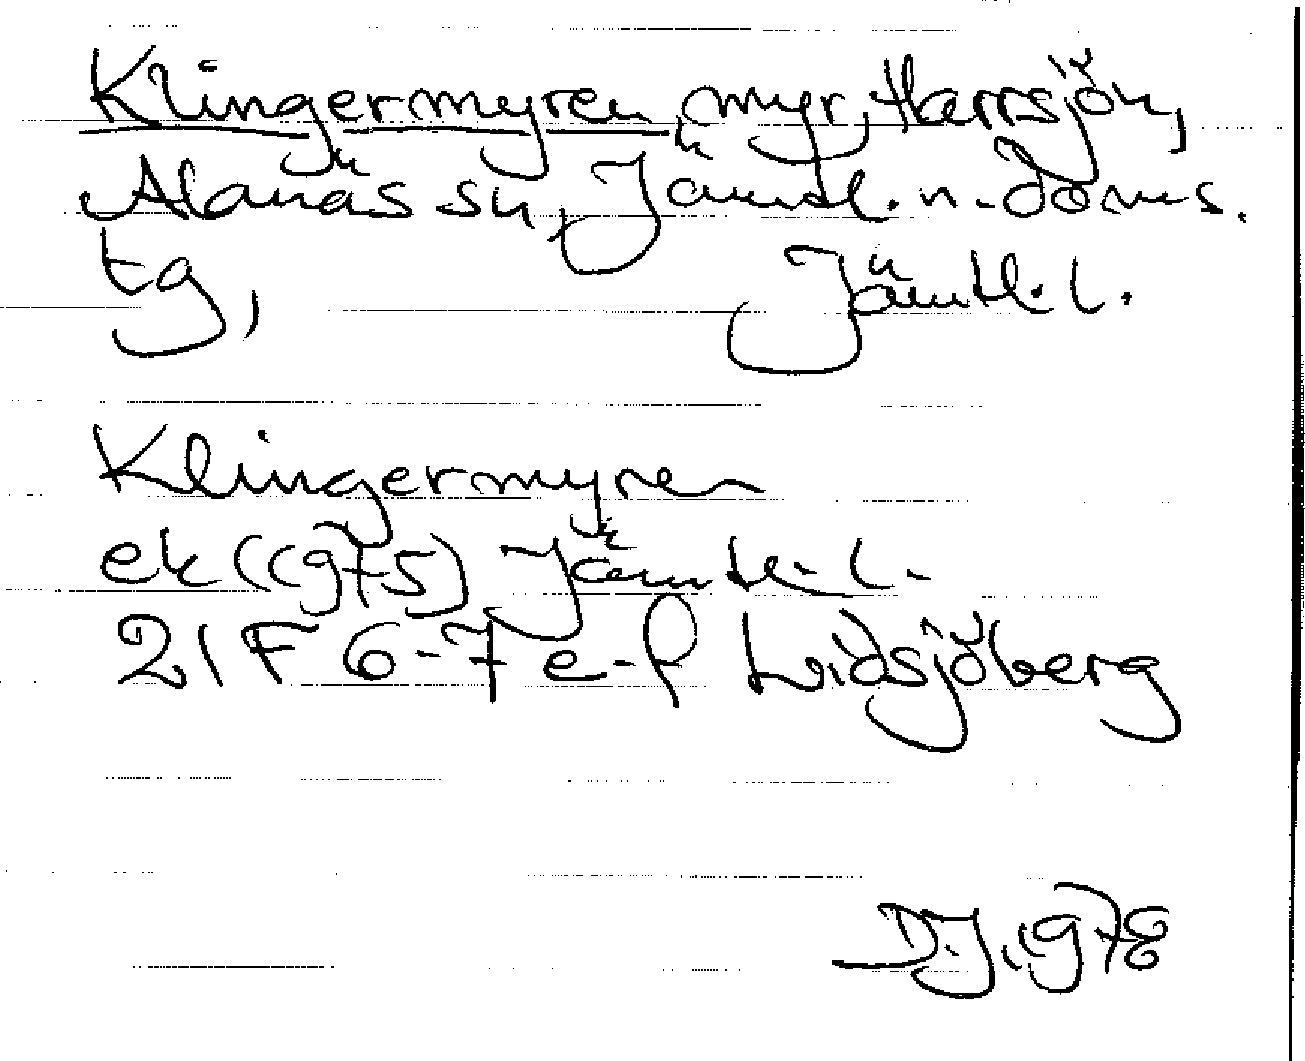 Klingermyren, myr, Harrsjön,
Alanäs sn, Jämtl. n. doms.
tg, Jämtl. l.
Klingermyren
ek (1975) Jämtl. l.
21 F 6-7 e-f Lidsjöberg
D.J. 1978